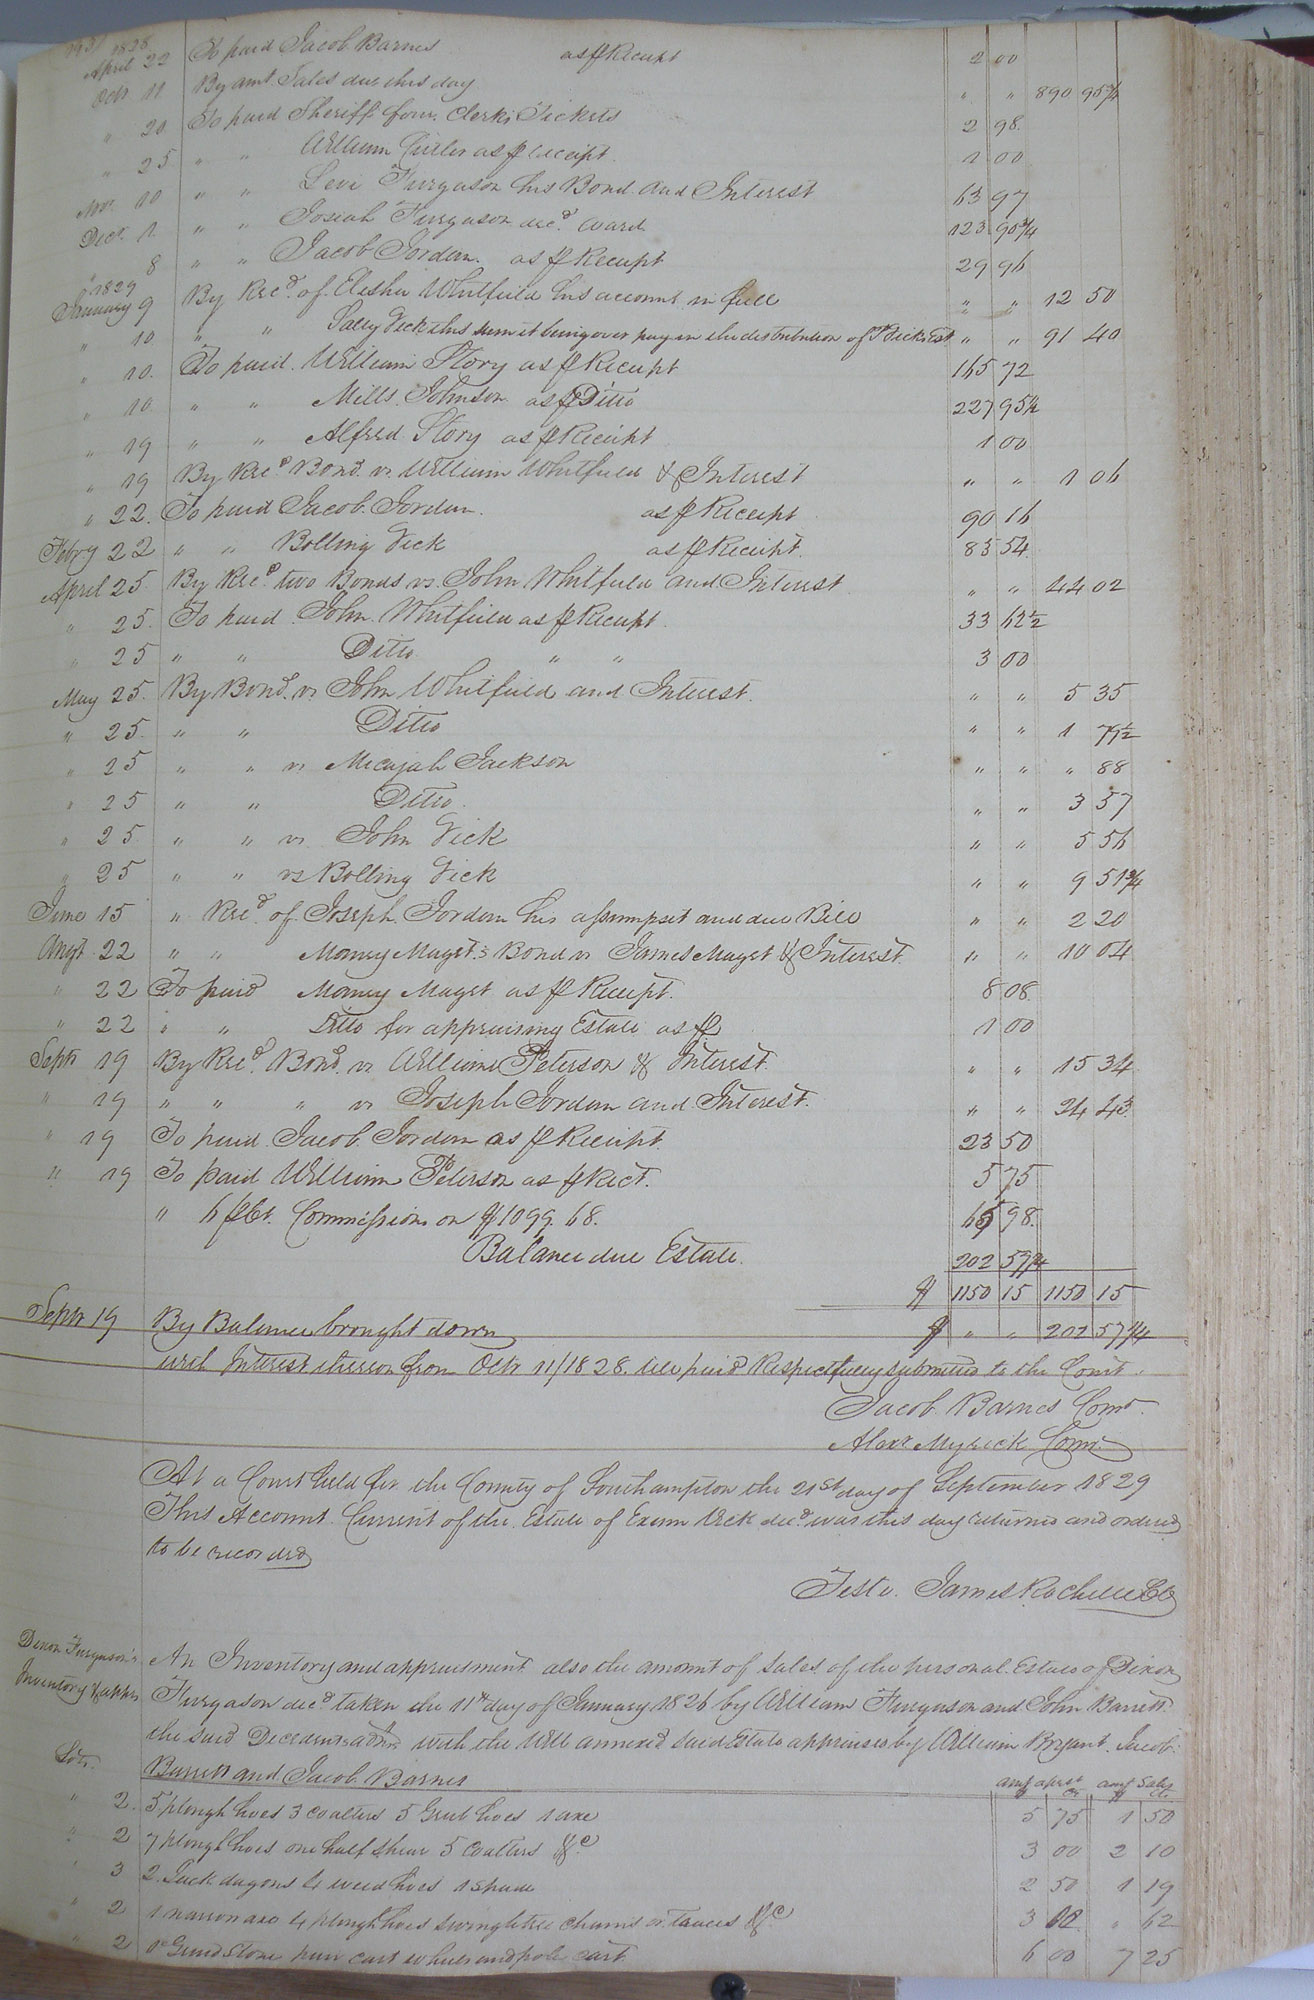 1828
April 22 To paid Jacob Barnes as pr Receipt 2 00
Octr 11 By amt Sales due this day " " 890 95¾
" 20 To paid Sheriff four Clerks Tickets 2 98
" 25 " " William as pr receipt 1 00
Nov. 10 " " Levi Furgason his Bond and Interest 63 97
Decr 1 " " Josiah Furgason decd ward 123 90¾
" 8 " " Jacob Jordan as pr Receipt 29 96
1829
January 9 By Recd of Elisha Whitfield his account in full " " 12 50
" 10 " " Sally Vick this sum it being over pay in the distribution of Vicks Est " " 91 40
" 10 To paid William Story as pr Receipt 165 72
" 10 " " Mills Johnson as pr Ditto 227 95½
" 19 " " Alfred Story as pr Receipt 1 00
" 19 By Recd Bond vs William Whitfield & Interest " " 1 06
" 22 To paid Jacob Jordan as pr Receipt 90 16
Febry 22 " " Bolling Vick as pr Receipt 83 54
April 25 By Recd two Bonds vs John Whitfield and Interest " " 44 02
" 25 To paid John Whitfield as pr Receipt 33 62½
" 25 " " Ditto " " 3 00
May 25 By Bond vs John Whitfield and Interest " " 5 35
" 25 " " Ditto " " 1 79½
" 25 " " vs Micajah Jackson " " " 88
" 25 " " Ditto " " 3 57
" 25 " " vs John Vick " " 5 56
" 25 " " vs Bolling Vick " " 9 51¾
June 15 " Recd of Joseph Jordan his assumpsit and due Bill " " 2 20
Augt 22 " " Morney Maget's Bond vs James Maget & Interest " " 10 04
" 22 To paid Morney Maget as pr Receipt 8 08
" 22 " " Ditto for appraising Estate as pr 1 00
Septr 19 By Recd Bond vs William Peterson & Interest " " 15 34
" 19 " " " vs Joseph Jordan and Interest " " 24 45
" 19 To paid Jacob Jordan as pr Receipt 23 50
" 19 To paid William Peterson as pr Rect. 5 75
" 6 pr Ct. Commissions on $1099.68. 65 98
Balance due Estate 202 57¾
$ 1150 15 1150 15
Septr 19 By Balance brought down $ " " 202 57¾
with Interest thereon from Octr 11/1828 till paid Respectfully submitted to the Court
Jacob Barnes Comr
Alexr Myrick Comr
At a Court held for the County of Southampton the 21st day of September 1829
This Account Current of the Estate of Exum Vick decd was this day returned and ordered
to be recorded
Teste. James Rochelle Clk
Dixon Furgason's An Inventory and appraisment also the amount of Sales of the personal Estate of Dixon
Inventory & appr Furgason decd taken the 11th day of January 1826 by William Furgason and John Barrett
the said Decedents admr with the Will annexed said Estate appraised by William Bryant Jacob
Lots Barrett and Jacob Barnes amt aprst amt Sales
" 2 5 plough hoes 3 coalters 5 Grub hoes 1 axe 5 75 1 50
" 2 7 plough hoes one half shear 5 coalters &c 3 00 2 10
" 3 2 4 weed hoes 1 spade 2 50 1 19
" 2 1 narrow axe 4 plough hoes swingletree chains or traces &c 3 " 62
" 2 1 Grind Stone pair cart wheels and pole cart 6 00 7 25